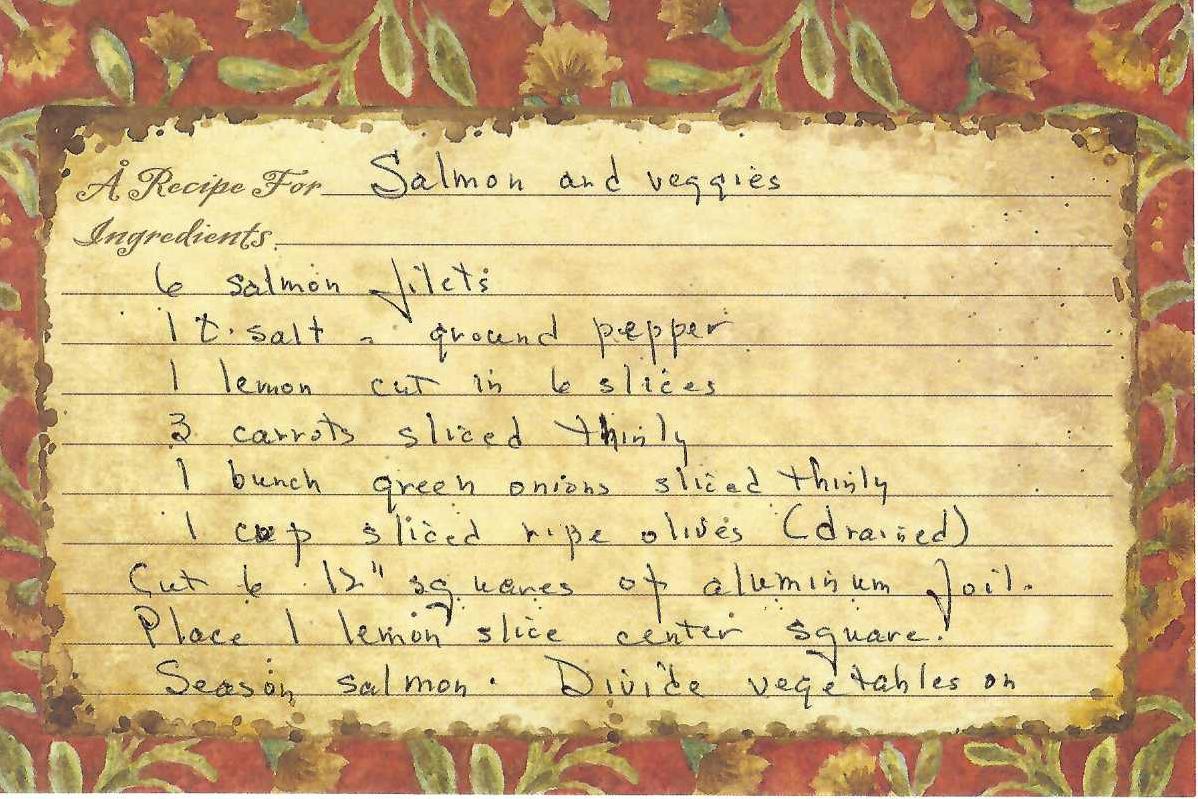 Å Recipe For Salmon and veggies
Ingredients
6 salmon filets
1 t. salt - ground pepper
1 lemon cut in 6 slices
3 carrots sliced thinly
1 bunch green onions sliced thinly
1 cup sliced ripe olives (drained)
Cut 6 12" squares of aluminum foil.
Place 1 lemon slice center square.
Season salmon. Divide vegetables on